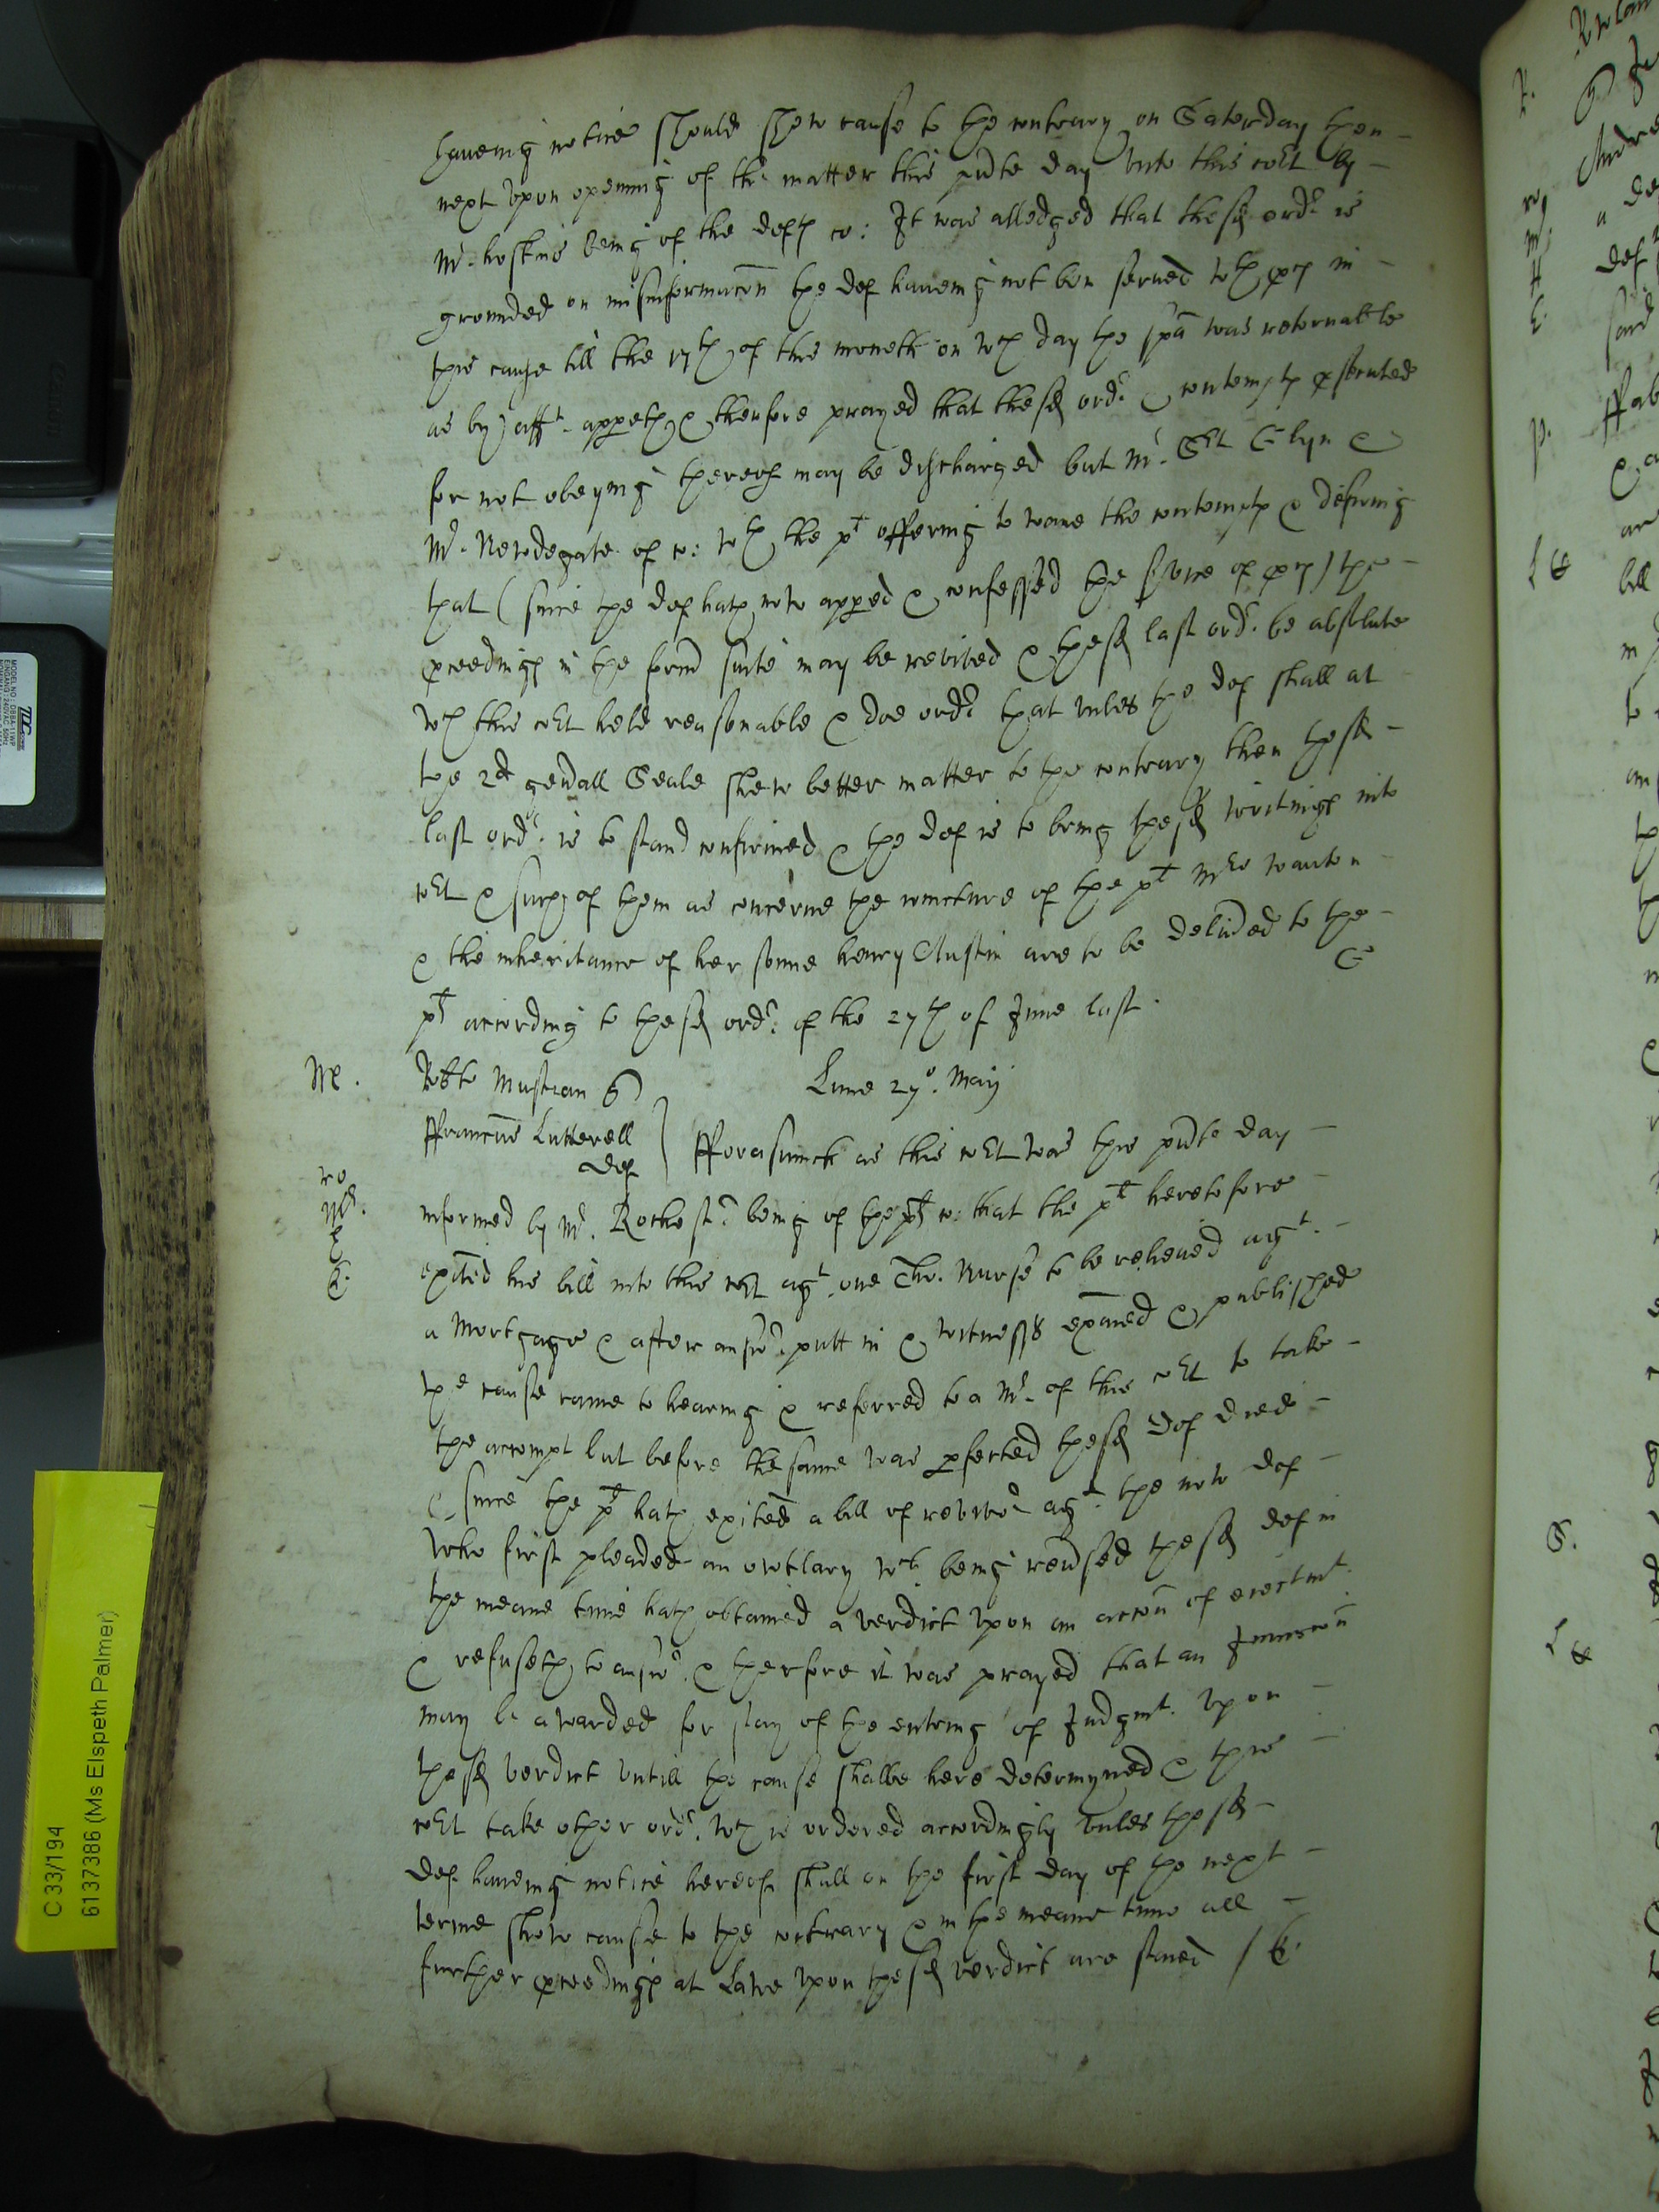 haveing notice should shew cause to the contrary on Saterday then
next Vpon opening of the matter this pñte day vnto this coĩt by
Mr. hoskins being of the defts co: It was alledged that the sd ordr. is
grounded on misinformacõn the def haueing not ben serued wth in
this cause till the 17th of this moneth on wch day the spã was retornable
as by afft. appeth & therfore prayed that the sd ordr. & contempts psecuted
for not obeying thereof may be discharged but Mr. Sit Glyn &
Mr. Newdegate of co: wth the plt offering to waue the contempts & desiring
that (since the def hath now appeed & confessed the svice of ) the
pceedings in the formr suite may be revived & the sd last ordr. be absolute
wch this coĩt held reasonable & doe ordr. that vnles the def shall at
the 2d genall Seale shew better matter to the contrary then the sd
last ordr. is to stand confirmed & the def is to bring the sd writings into
coĩt & such of them as concerne the iointure of the plt Mris Wanton
& the inheritance of her sonne henry Austin are to be deliued to the
plt according to the sd ordr. of the 27th of June last.
Robto Mustian
Lune 27o. Maij
ffrancus Lutterell
def
fforasmuch as this coĩt was this pñte day
informed by Mr. being of the plts co: that the plt heretofore
exited his bill into this coĩt agt. one Tho. Nurse to be releiued agt.
a Mortgage & after answr. putt in & witness exaied & published
the cause came to hearing & referred to a Mr. of this coĩt to take
the accompt but before the same was pfected the sd def died
& since the plt hath exited a bill of revivor agt. the now def
who first pleaded an owtlary wch. being revsed the sd def in
the meane time hath obtained a verdict vpon an accõn of eiectmt.
& refuseth to answr. & therfore it was prayed that an Iniuncõn
may be awarded for stay of the entring of Judgmt. vpon
the sd verdict vntill the cause shalbe here determyned & this
coĩt take other ordr. wch is ordered accordingly vnles the sd
def. haueing notice hereof shall on the first day of the next
terme shew cause to the contrary & in the meane time all
further pceedings at Lawe vpon the sd verdict are staied /
C 33/194
6137386 (Ms Elspeth Palmer)